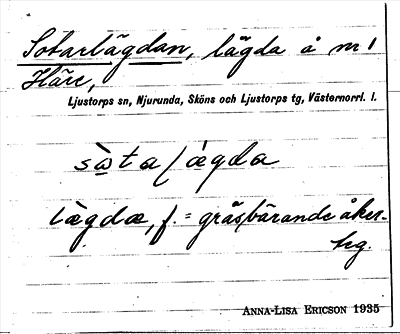 Sotarlägdan, lägda å nr 1
Häre,
Ljustorps sn, Njurunda, Sköns och Ljustorps tg, Västernorrl. l.
sòta lägda
lägda, f. = gräsbärande åker-
teg.
ANNA-LISA ERICSON 1935